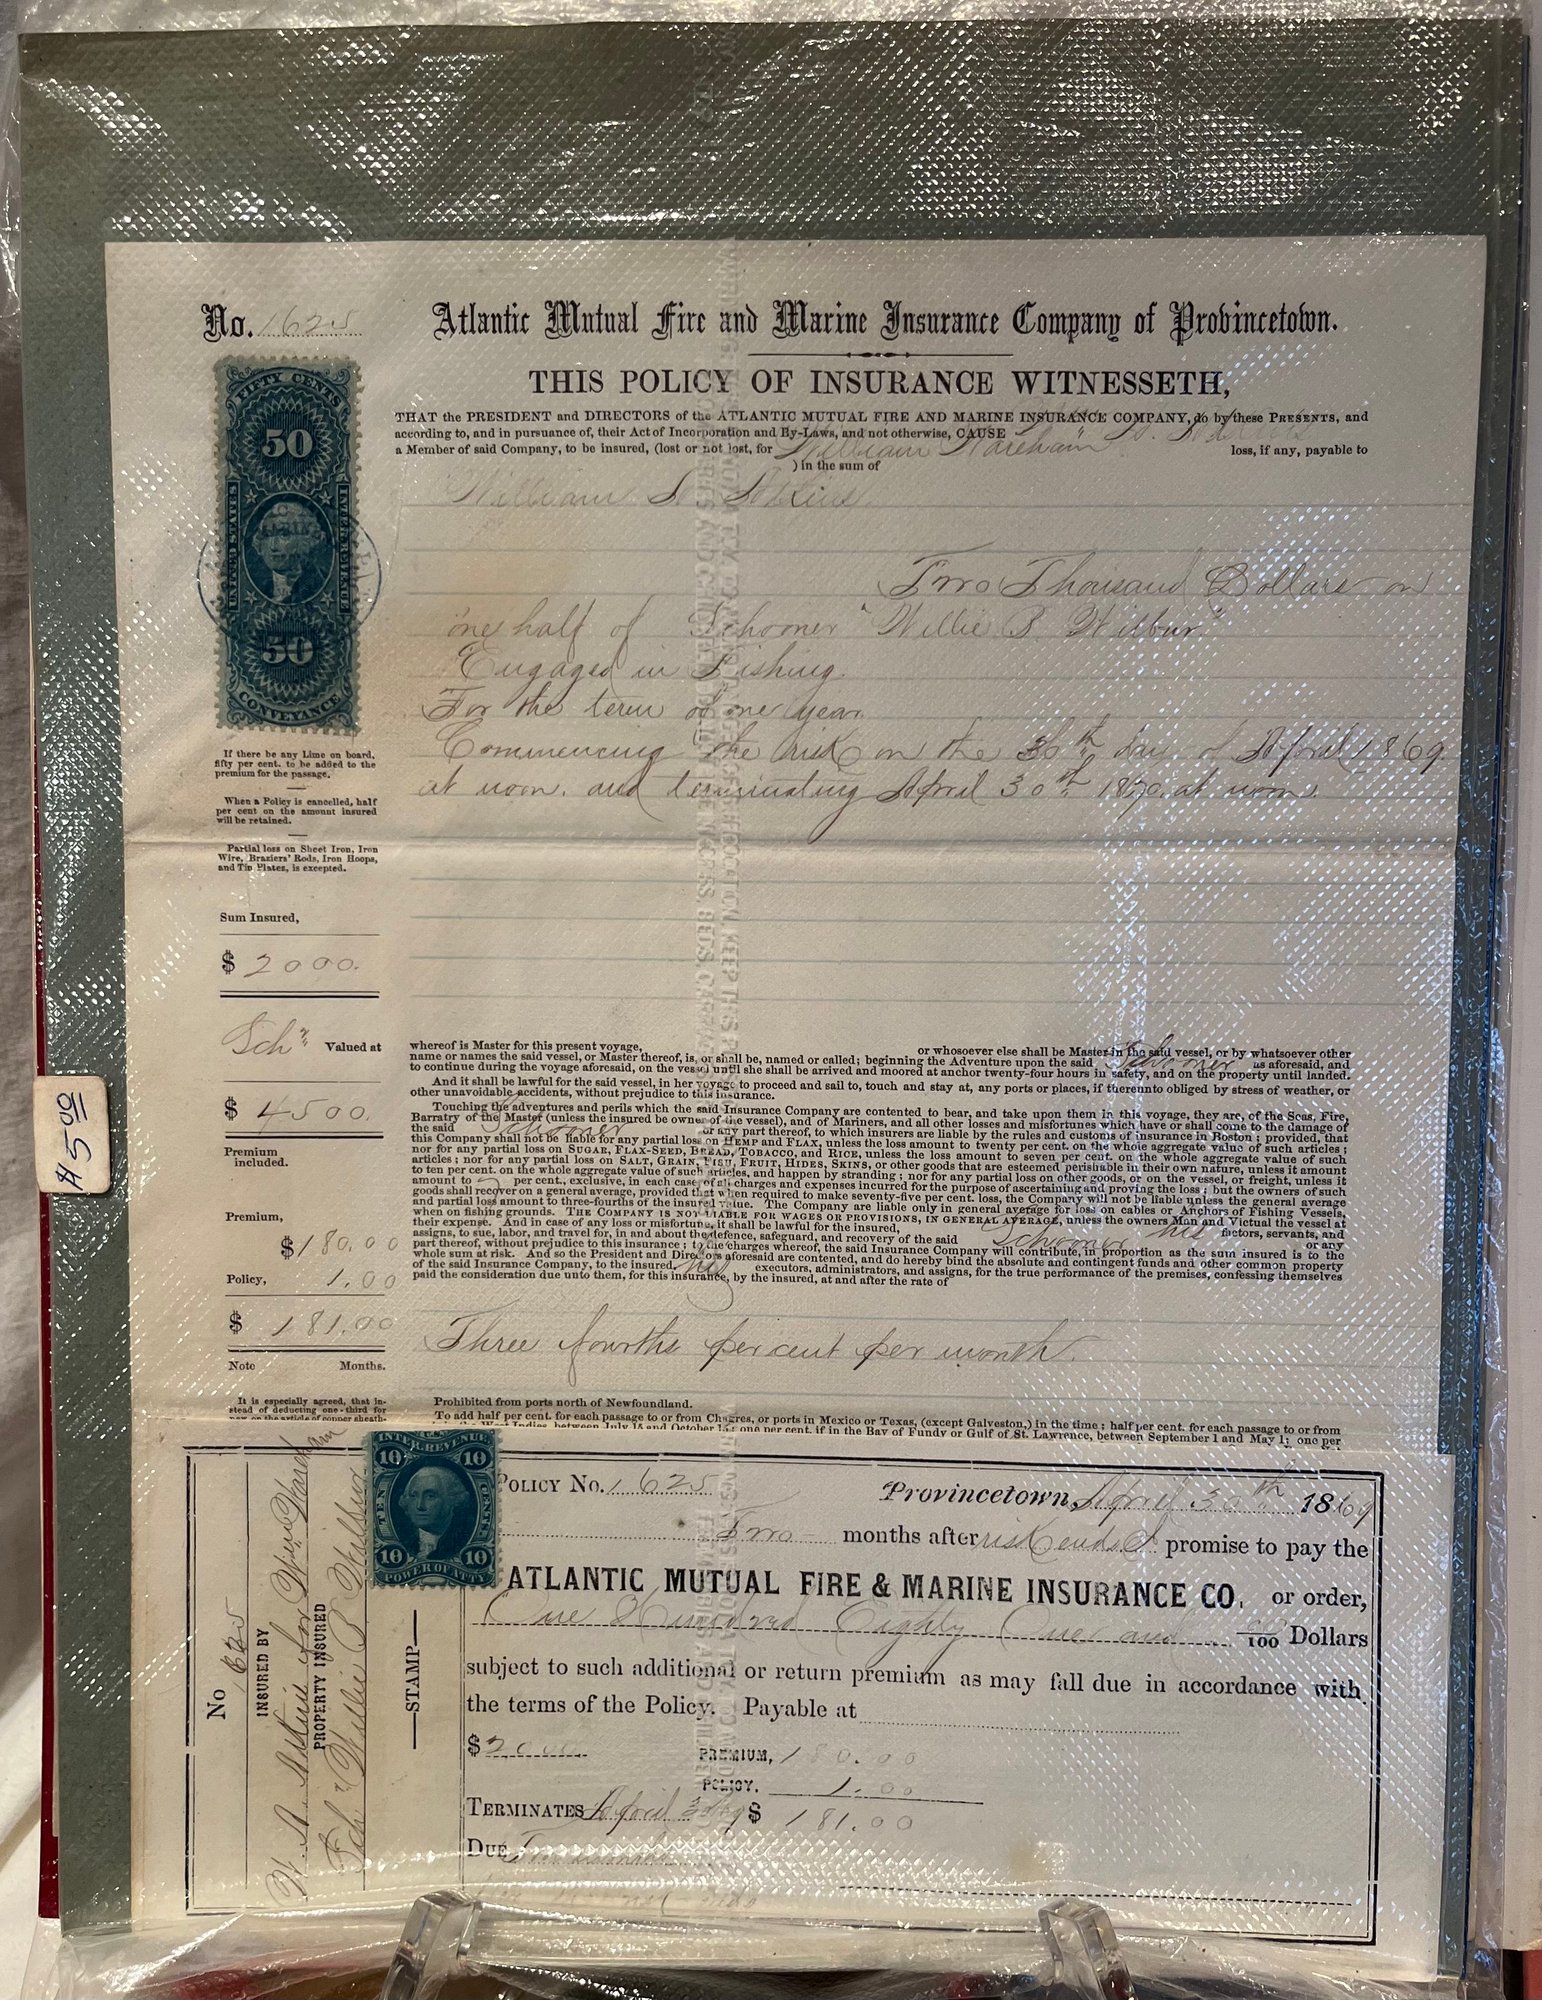 No. 1625
Atlantic Mutual Fire and Marine Insurance Company of Provincetown.
THIS POLICY OF INSURANCE WITNESSETH,
THAT the PRESIDENT and DIRECTORS of the ATLANTIC MUTUAL FIRE AND MARINE INSURANCE COMPANY, do by these PRESENTS, and
according to, and in pursuance of, their Act of Incorporation and By-Laws, and not otherwise, CAUSE
a Member of said Company, to be insured, (lost or not lost, for William Wareham loss, if any, payable to
) in the sum of
William
Two Thousand Dollars on
one half of Schooner "Willie S. Wilbur"
Engaged in Fishing.
For the term of one year
Commencing the risk on the 30th day of April 1869.
at noon. and terminating April 30th 1870. at noon.
FIFTY CENTS
50
UNITED STATES
INTER. REVENUE
50
CONVEYANCE
If there be any Lime on board,
fifty per cent. to be added to the
premium for the passage.
When a Policy is cancelled, half
per cent on the amount insured
will be retained.
Partial loss on Sheet Iron, Iron
Wire, Braziers' Rods, Iron Hoops,
and Tin Plates, is excepted.
Sum Insured,
$ 2000.
Schr Valued at
$ 4500.
Premium
included.
Premium,
$180.00
Policy, 1.00
$ 181.00
Note Months.
It is especially agreed, that in-
stead of deducting one-third for
new on the article of copper sheath-
$5.00
whereof is Master for this present voyage, or whosoever else shall be Master in the said vessel, or by whatsoever other
name or names the said vessel, or Master thereof, is, or shall be, named or called; beginning the Adventure upon the said Schooner as aforesaid, and
to continue during the voyage aforesaid, on the vessel until she shall be arrived and moored at anchor twenty-four hours in safety, and on the property until landed.
And it shall be lawful for the said vessel, in her voyage to proceed and sail to, touch and stay at, any ports or places, if thereunto obliged by stress of weather, or
other unavoidable accidents, without prejudice to this insurance.
Touching the adventures and perils which the said Insurance Company are contented to bear, and take upon them in this voyage, they are, of the Seas, Fire,
Barratry of the Master (unless the insured be owner of the vessel), and of Mariners, and all other losses and misfortunes which have or shall come to the damage of
the said Schooner or any part thereof, to which insurers are liable by the rules and customs of insurance in Boston; provided, that
this Company shall not be liable for any partial loss on HEMP and FLAX, unless the loss amount to twenty per cent. on the whole aggregate value of such articles;
nor for any partial loss on SUGAR, FLAX-SEED, BREAD, TOBACCO, and RICE, unless the loss amount to seven per cent. on the whole aggregate value of such
articles; nor for any partial loss on SALT, GRAIN, FISH, FRUIT, HIDES, SKINS, or other goods that are esteemed perishable in their own nature, unless it amount
to ten per cent. on the whole aggregate value of such articles, and happen by stranding; nor for any partial loss on other goods, or on the vessel, or freight, unless it
amount to 5 per cent., exclusive, in each case, of all charges and expenses incurred for the purpose of ascertaining and proving the loss; but the owners of such
goods shall recover on a general average, provided that when required to make seventy-five per cent. loss, the Company will not be liable unless the general average
and partial loss amount to three-fourths of the insured value. The Company are liable only in general average for loss on cables or Anchors of Fishing Vessels,
when on fishing grounds. THE COMPANY IS NOT LIABLE FOR WAGES OR PROVISIONS, IN GENERAL AVERAGE, unless the owners Man and Victual the vessel at
their expense. And in case of any loss or misfortune, it shall be lawful for the insured, his factors, servants, and
assigns, to sue, labor, and travel for, in and about the defence, safeguard, and recovery of the said Schooner or any
part thereof, without prejudice to this insurance; to the charges whereof, the said Insurance Company will contribute, in proportion as the sum insured is to the
whole sum at risk. And so the President and Directors aforesaid are contented, and do hereby bind the absolute and contingent funds and other common property
of the said Insurance Company, to the insured, his executors, administrators, and assigns, for the true performance of the premises, confessing themselves
paid the consideration due unto them, for this insurance, by the insured, at and after the rate of
Three fourths per cent per month.
Prohibited from ports north of Newfoundland.
To add half per cent. for each passage to or from Chagres, or ports in Mexico or Texas, (except Galveston,) in the time; half per cent. for each passage to or from
West Indies between July 15 and October 15; one per cent. if in the Bay of Fundy or Gulf of St. Lawrence, between September 1 and May 1; one per
No 1625
INSURED BY
for Wm Wareham
PROPERTY INSURED
Schr Willie S Wilbur
U.S.
INTER. REVENUE
10 10
TEN CENTS.
10 10
POWER OF ATTY
STAMP
POLICY NO. 1625 Provincetown, April 30th 1869
Two months after risk ends I promise to pay the
ATLANTIC MUTUAL FIRE & MARINE INSURANCE CO. or order,
One Hundred Eighty One and 00/100 Dollars
subject to such additional or return premium as may fall due in accordance with
the terms of the Policy. Payable at
$2000 PREMIUM, 180.00
POLICY, 1.00
TERMINATES April $ 181.00
DUE